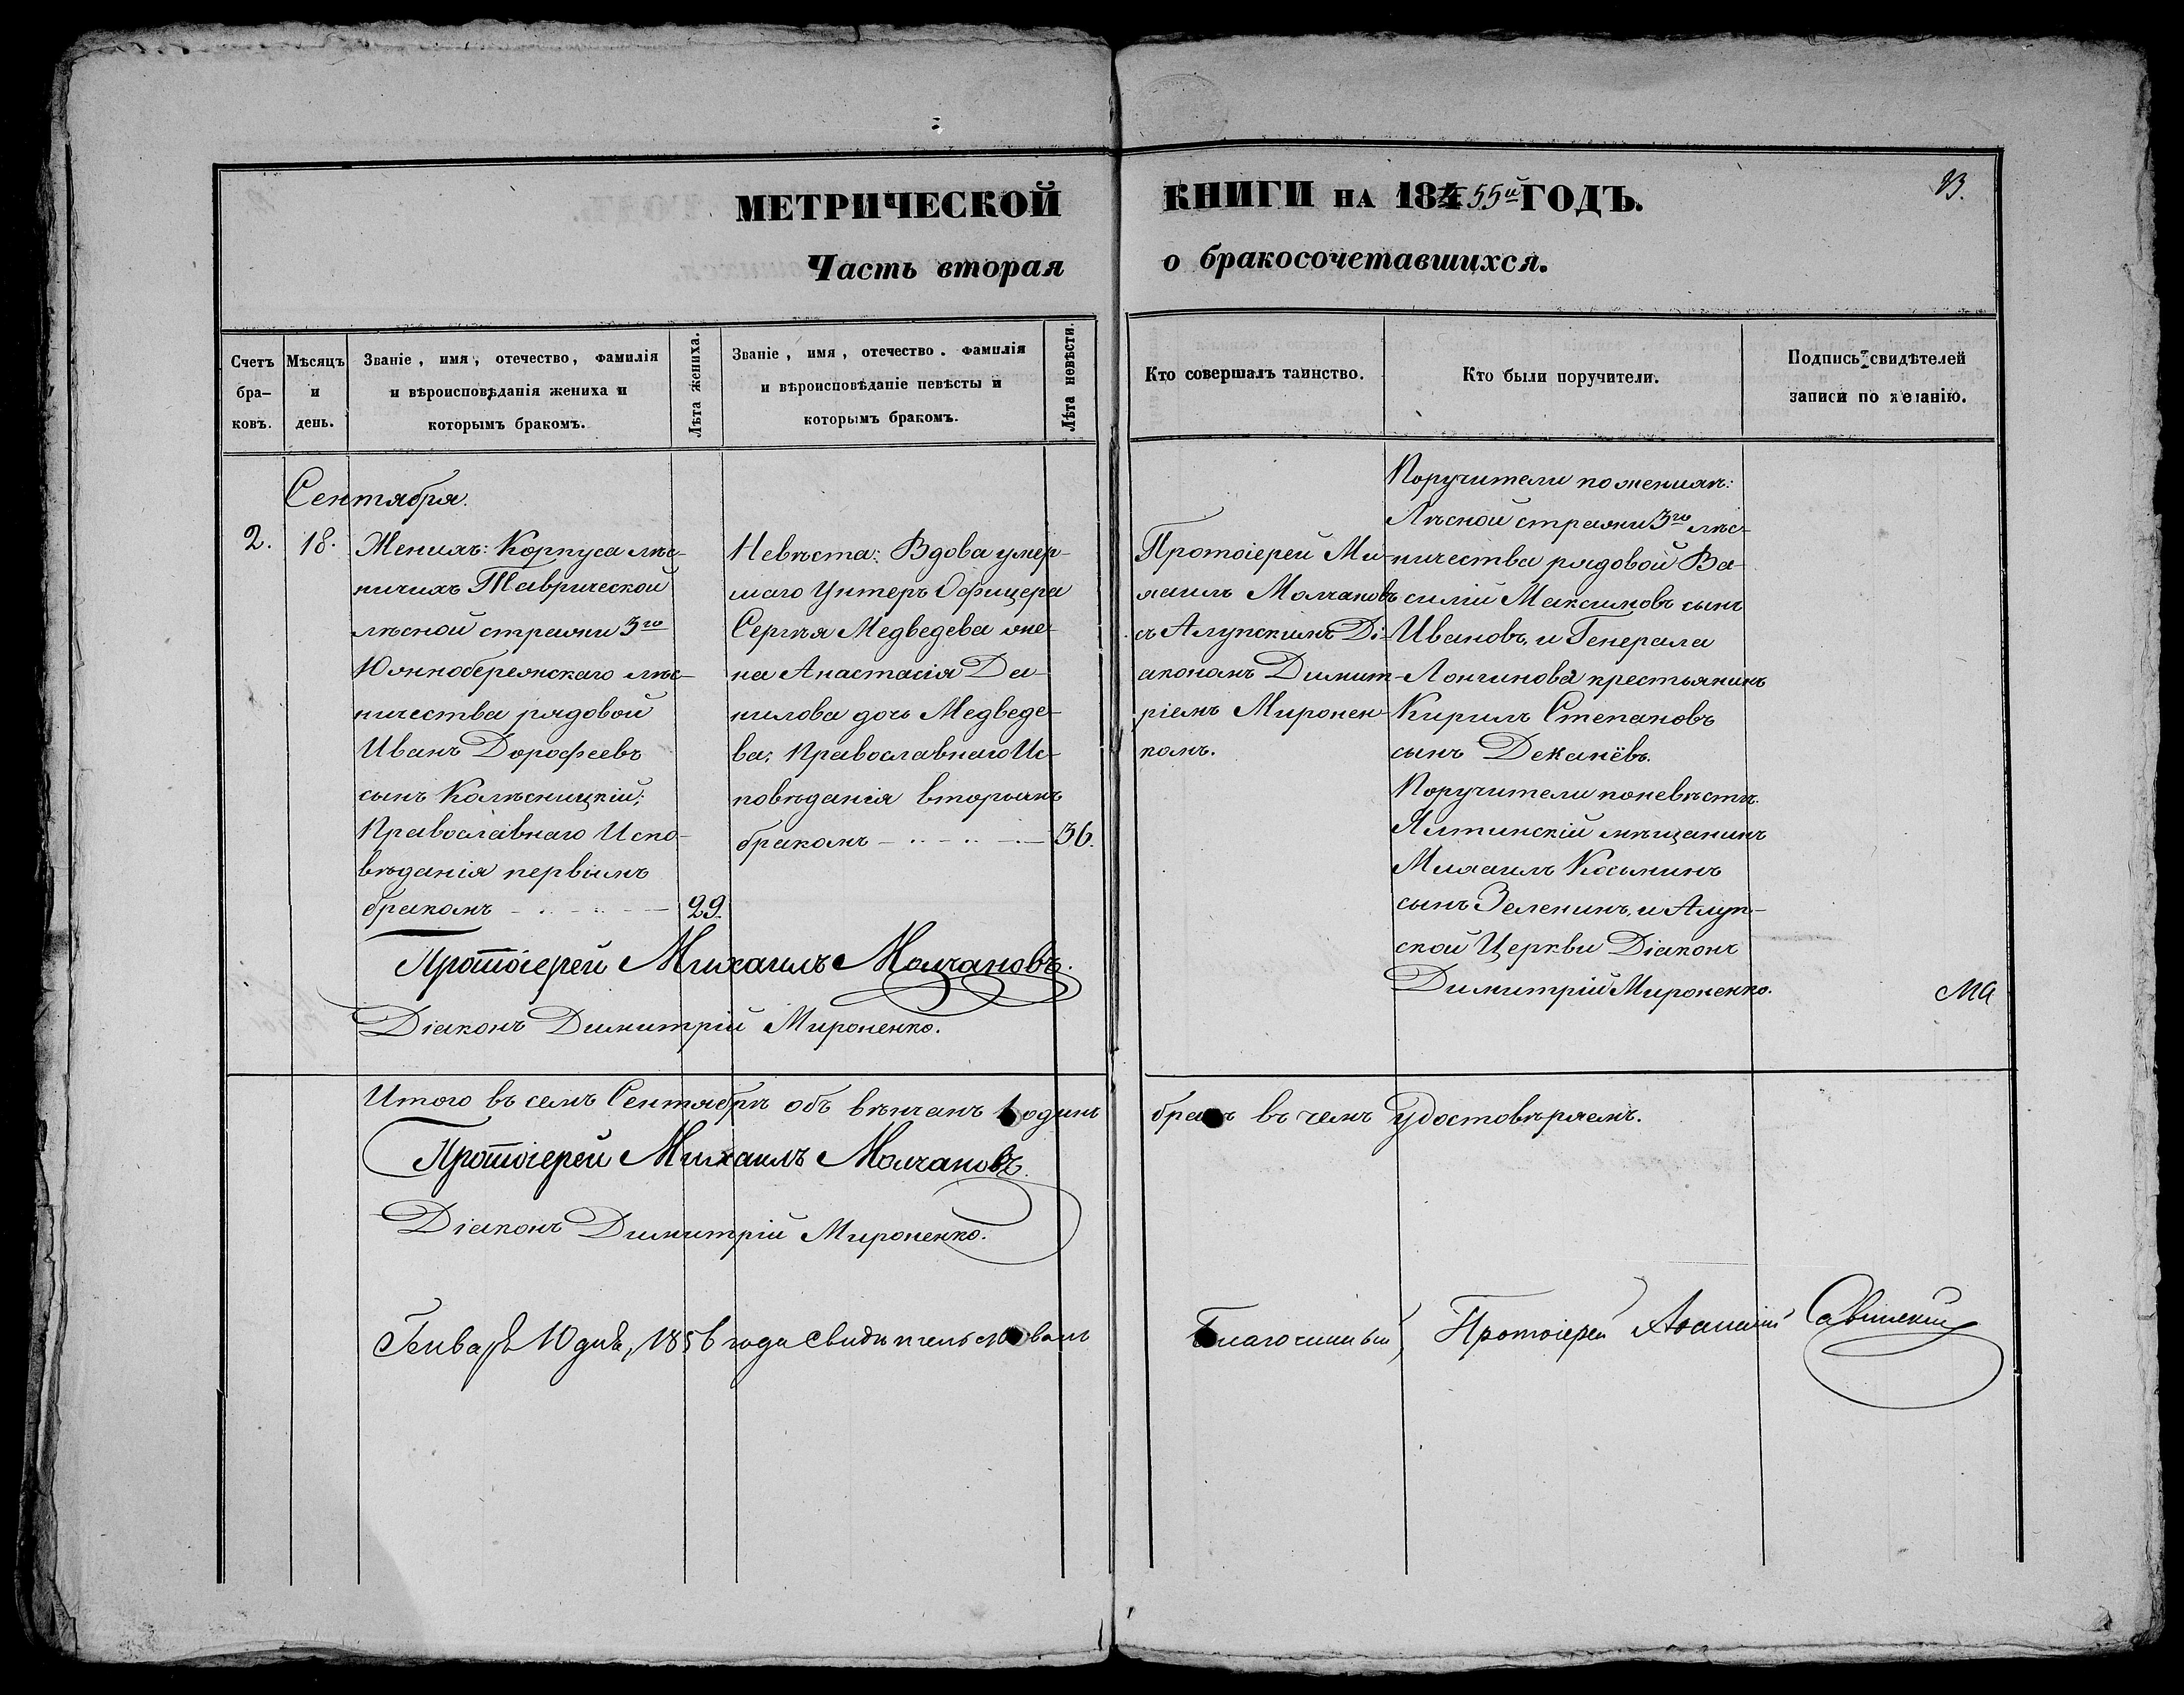 МЕТРИЧЕСКОЙ КНИГИ НА 184 55й ГОДЪ.
Часть вторая о бракосочетавшихся.
Счетъ бра-ковъ.
Мѣсяцъ и день.
Званіе, имя, отечество, фамилія
и вѣроисповѣданія жениха и
которымъ бракомъ.
Лѣта жениха.
Званіе, имя, отечество. фамилія
и вѣроисповѣданіе невѣсты и
которымъ бракомъ.
Лѣта невѣсты.
Кто совершалъ таинство.
Кто были поручители.
Подпись свидѣтелей
записи по желанію.
Сентября.
2. 18.
Женихъ: Корпуса лѣс-
ничихъ Таврической
лѣсной стражи 3го
Южнобережскаго лѣс-
ничества рядовой
Иванъ Дорофеевъ
сынъ Колѣсницкій;
Православнаго Испо-
вѣданія первымъ
бракомъ 29.
Невѣста: Вдова умер-
шаго Унтеръ Офицера
Сергѣя Медведева же-
на Анастасія Да-
нилова дочь Медведе-
ва; Православнаго Ис-
повѣданія вторымъ
бракомъ 36.
Протоіерей Ми-
хаилъ Молчановъ
съ Алупскимъ Ді-
акономъ Димит-
ріемъ Миронен-
комъ.
Поручители по женихѣ:
Лѣсной стражи 3го лѣс-
ничества рядовой Ва-
силій Максимовъ сынъ
Ивановъ, и Генерала
Лонгинова крестьянинъ
Кирилъ Степановъ
сынъ Деканёвъ.
Поручители по невѣстѣ.
Ялтинскій мѣщанинъ
Михаилъ Косьминъ
сынъ Зеленинъ, и Алуп-
ской Церкви Діаконъ
Димитрій Мироненко.
Протоіерей Михаилъ Молчановъ.
Діаконъ Димитрій Мироненко.
Итого въ семъ Сентябрѣ объ вѣнчанъ 1 одинъ бракъ въ чемъ удостовѣряемъ.
Протоіерей Михаилъ Молчановъ.
Діаконъ Димитрій Мироненко.
Генваря 10 дня, 1856 года свидѣтельствовалъ Благочинный Протоіерей